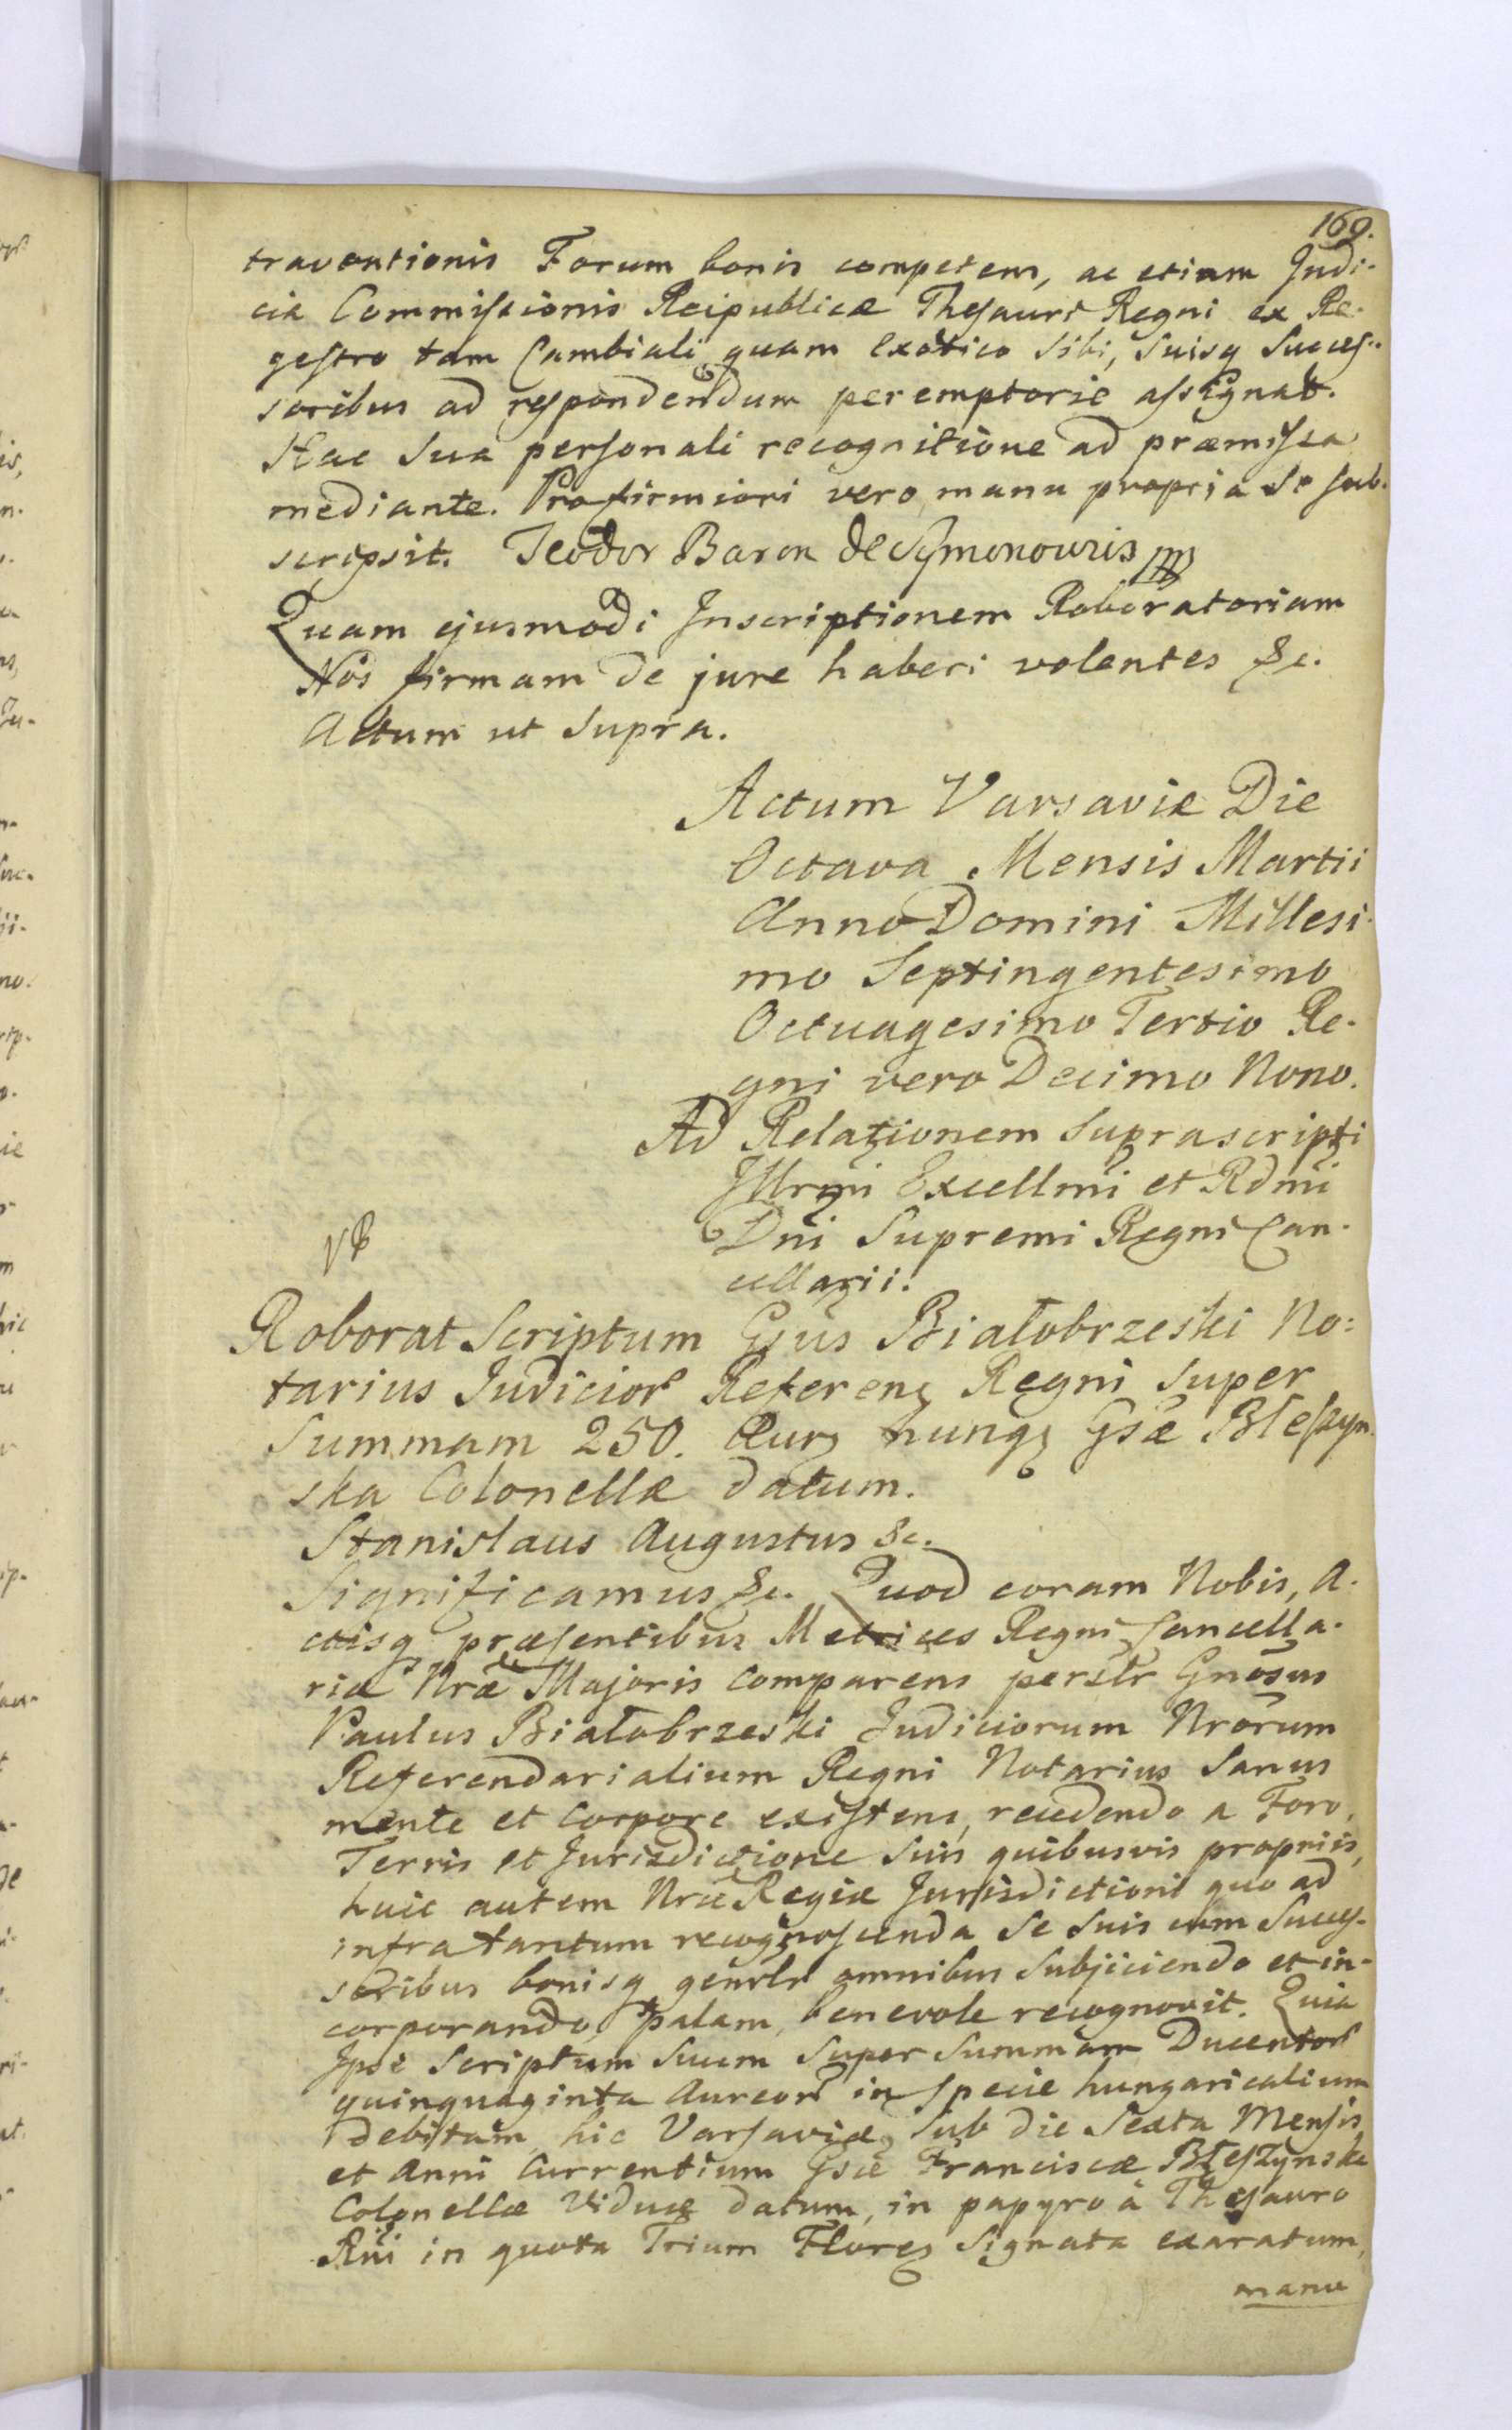 169.
traventionis Forum bonis competens, ac etiam Judi-
cia Commissionis Reipublicæ Thesauri Regni ex Re-
gestro tam Cambiali quam Exotico Sibi, Suisq Succes-
soribus ad respondendum peremptorie assignat.
Hac Sua personali recognitione ad præmissa
mediante. Pro firmiori vero manu propria Se sub-
scripsit. Teodor Baron de Symonowis
Quam ejusmodi Inscriptionem Roboratoriam
Nos firmam de jure haberi volentes &c.
Actum ut Supra.
Actum Varsaviæ Die
Octava Mensis Martii
Anno Domini Millesi-
mo Septingentesimo
Octuagesimo Tertio Re-
gni vero Decimo Nono.
Ad Relationem Suprascripti
Illrmi Excellmi et Rdmi
Dni Supremi Regni Can-
cellarii.
Roborat Scriptum Gsus Białobrzeski No:
tarius Judicior Referen Regni Super
Summam 250. Aur hung Gsæ Błeszyn
ska Colonellæ datum.
Stanislaus Augustus &c.
Significamus &c. Quod coram Nobis, A-
ctisq præsentibus Metrices Regni Cancella-
riæ Nræ Majoris Comparens persltr Gnosus
Paulus Białobrzeski Judiciorum Nrorum
Referendarialium Regni Notarius Sanus
mente et Corpore existens, recedendo a Foro,
Terris et Jurisdictione Suis quibusvis propriis,
huic autem Nræ Regiæ Jurisdictioni quo ad
infra tantum recognoscenda Se Suis cum Succes-
soribus bonisq genrlr omnibus Subjiciendo et in-
corporando, palam, benevole recognovit. Quia
Ipse Scriptum Suum Super Summam Ducentor
quinquaginta Aureor in Specie hungaricalium
debitam hic Varsaviæ Sub die Sexta Mensis
et Anni Currentium Gsæ Franciscæ Błeszynska
Colonellæ Viduæ datum, in papyro à Thesauro
Rni in quota Trium Flore Signata exaratum,
manu